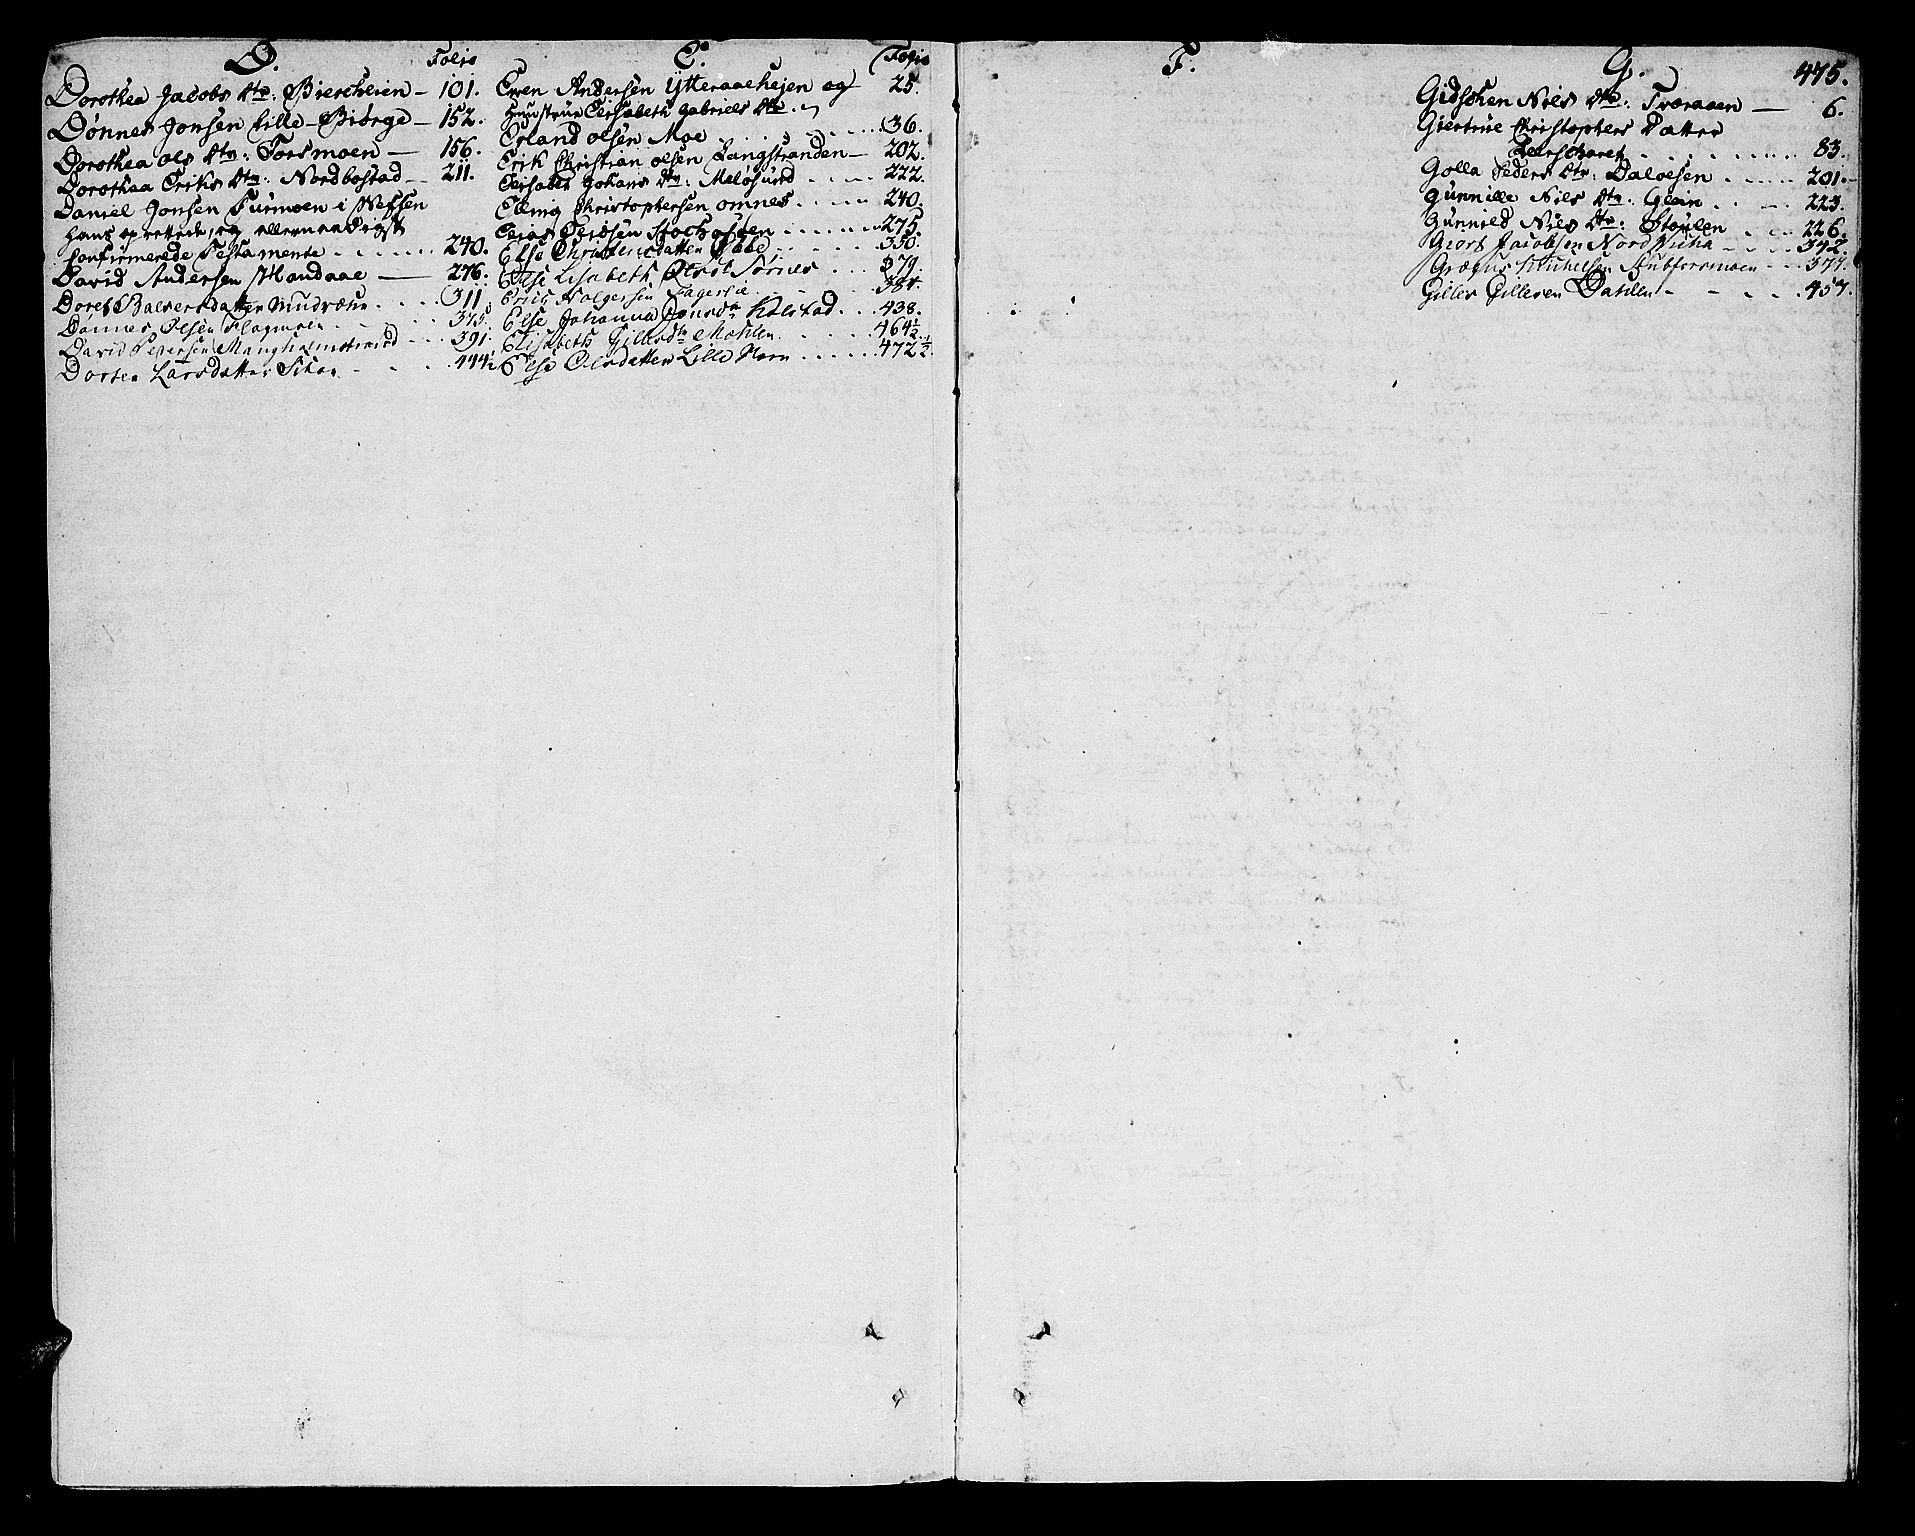 D.
Folio
Dorothea Jacobs Dtr: Biercheien — 101.
Dønnes Jonsen Lille-Biørge — 152.
Dorothea Ols Dtr: Forsmoen — 156.
Dorothea Eriks Dtr: Nordbostad — 211.
Daniel Jonsen Furmoen i Nefsen
hans oprettede, og allernaadigst
Confirmerede Testamente . . . . . . . 240.
David Andersen Mandaae — 276.
Doret Balsersdatter . . . . 311.
Dannes Olsen Flagmoen . . . . 375.
David Pedersen Mangholmstrand . . . 391.
Dorten Larsdatter . . . . 444½
E.
Folio
Even Andersen Ytteraaehejen og 25.
Huustrue Elisabeth Gabriels Dtr.
Erland Olsen Moe . . . . . . . 36.
Erik Christian Olsen Langstranden — 202.
Elisabet Johans Dtr: Meløsund . . . . 222.
Elling Christophersen Omnes . . . . 240.
Elias Eliasen . . . . . . 275.
Else Christensdatter . . . . 350.
Else Lisabeth . . . 379.
Eric Holgersen Fagerlie . . . . 384.
Else Johanna Jonsda Kulstad . . . 438.
Elisabeth Gillesdr Mohlen . . . . 464½
Else Olsdatter Lille Horn . . . . . . 472½.
F.
G.
475.
Gidsken Niels Dtr: Tveraaen — 6.
Giertrue Christophers Datter
Leerskaret . . . . . . . 83.
Golla Peders Dtr: Daloesen . . . . . . 201.
Gunnille Niels Dtr: Glein . . . . 223.
Gunnild Niels Dtr: Stoulen . . . . 226.
Georg Jacobsen Nordvicha . . . . 342.
Michelsen Stubforsmoen . . . 377.
Gilles Gillesen Datilen . . . . . 457.